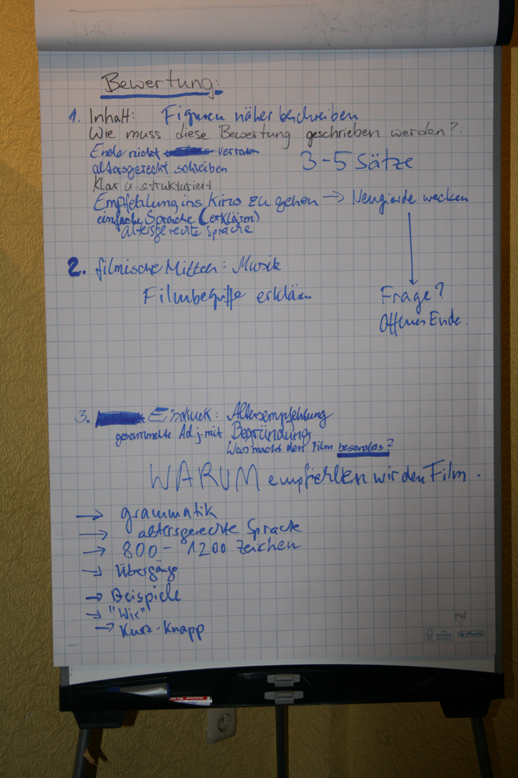 Bewertung:
1. Inhalt: Figuren näher beschreiben
Wie muss diese Bewertung geschrieben werden?
Ende nicht verraten
3-5 Sätze
altersgerecht schreiben
Klar u. strukturiert
Empfehlung ins Kino zu gehen → Neugierde wecken
einfache Sprache (erklären)
altersgerechte Sprache
2. filmische Mittel: Musik
Filmbegriffe erklären
Frage?
Offenes Ende.
3. Eindruck: Altersempfehlung
gesammelte Adj. mit Begründung
Was macht den Film besonders?
WARUM empfehlen wir den Film.
→ grammatik
→ altersgerechte Sprache
→ 800 - 1200 Zeichen
→ Übergänge
→ Beispiele
→ "Wir"
→ Kurz-Knapp